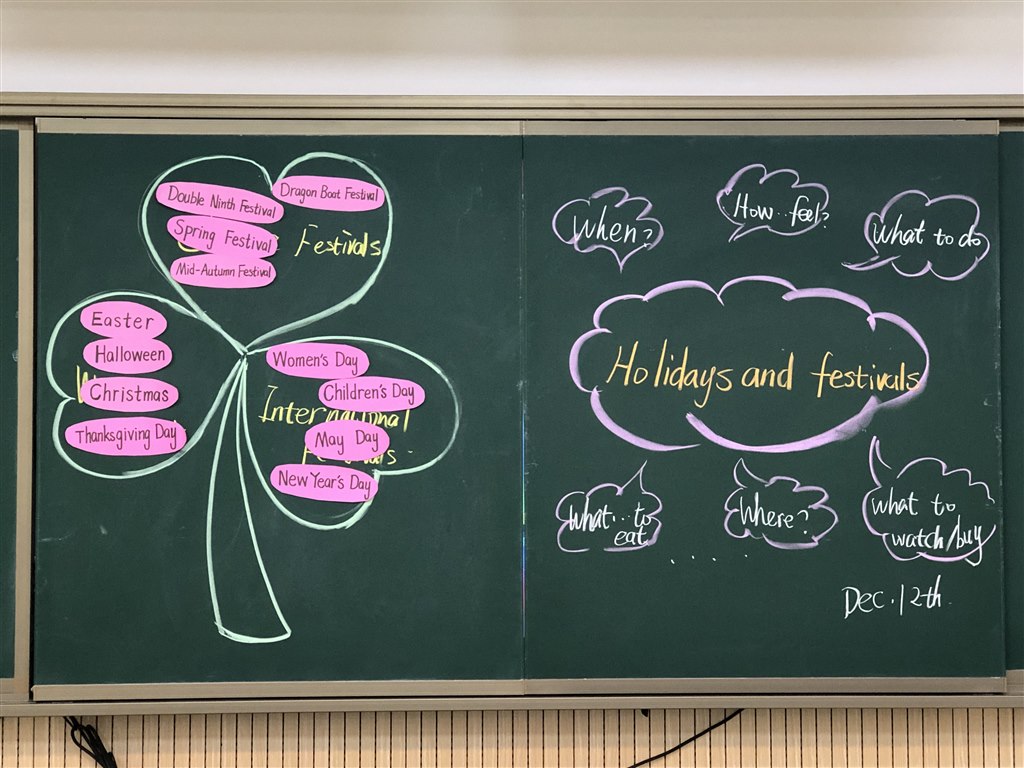 Double Ninth Festival
Dragon Boat Festival
Spring Festival
Festivals
Mid-Autumn Festival
Easter
Halloween
Christmas
Thanksgiving Day
Women's Day
Children's Day
International
May Day
New Year's Day
When?
How...feel?
What to do
Holidays and festivals
What...to
eat
Where?
what to
watch/buy
. . . .
Dec.12th.